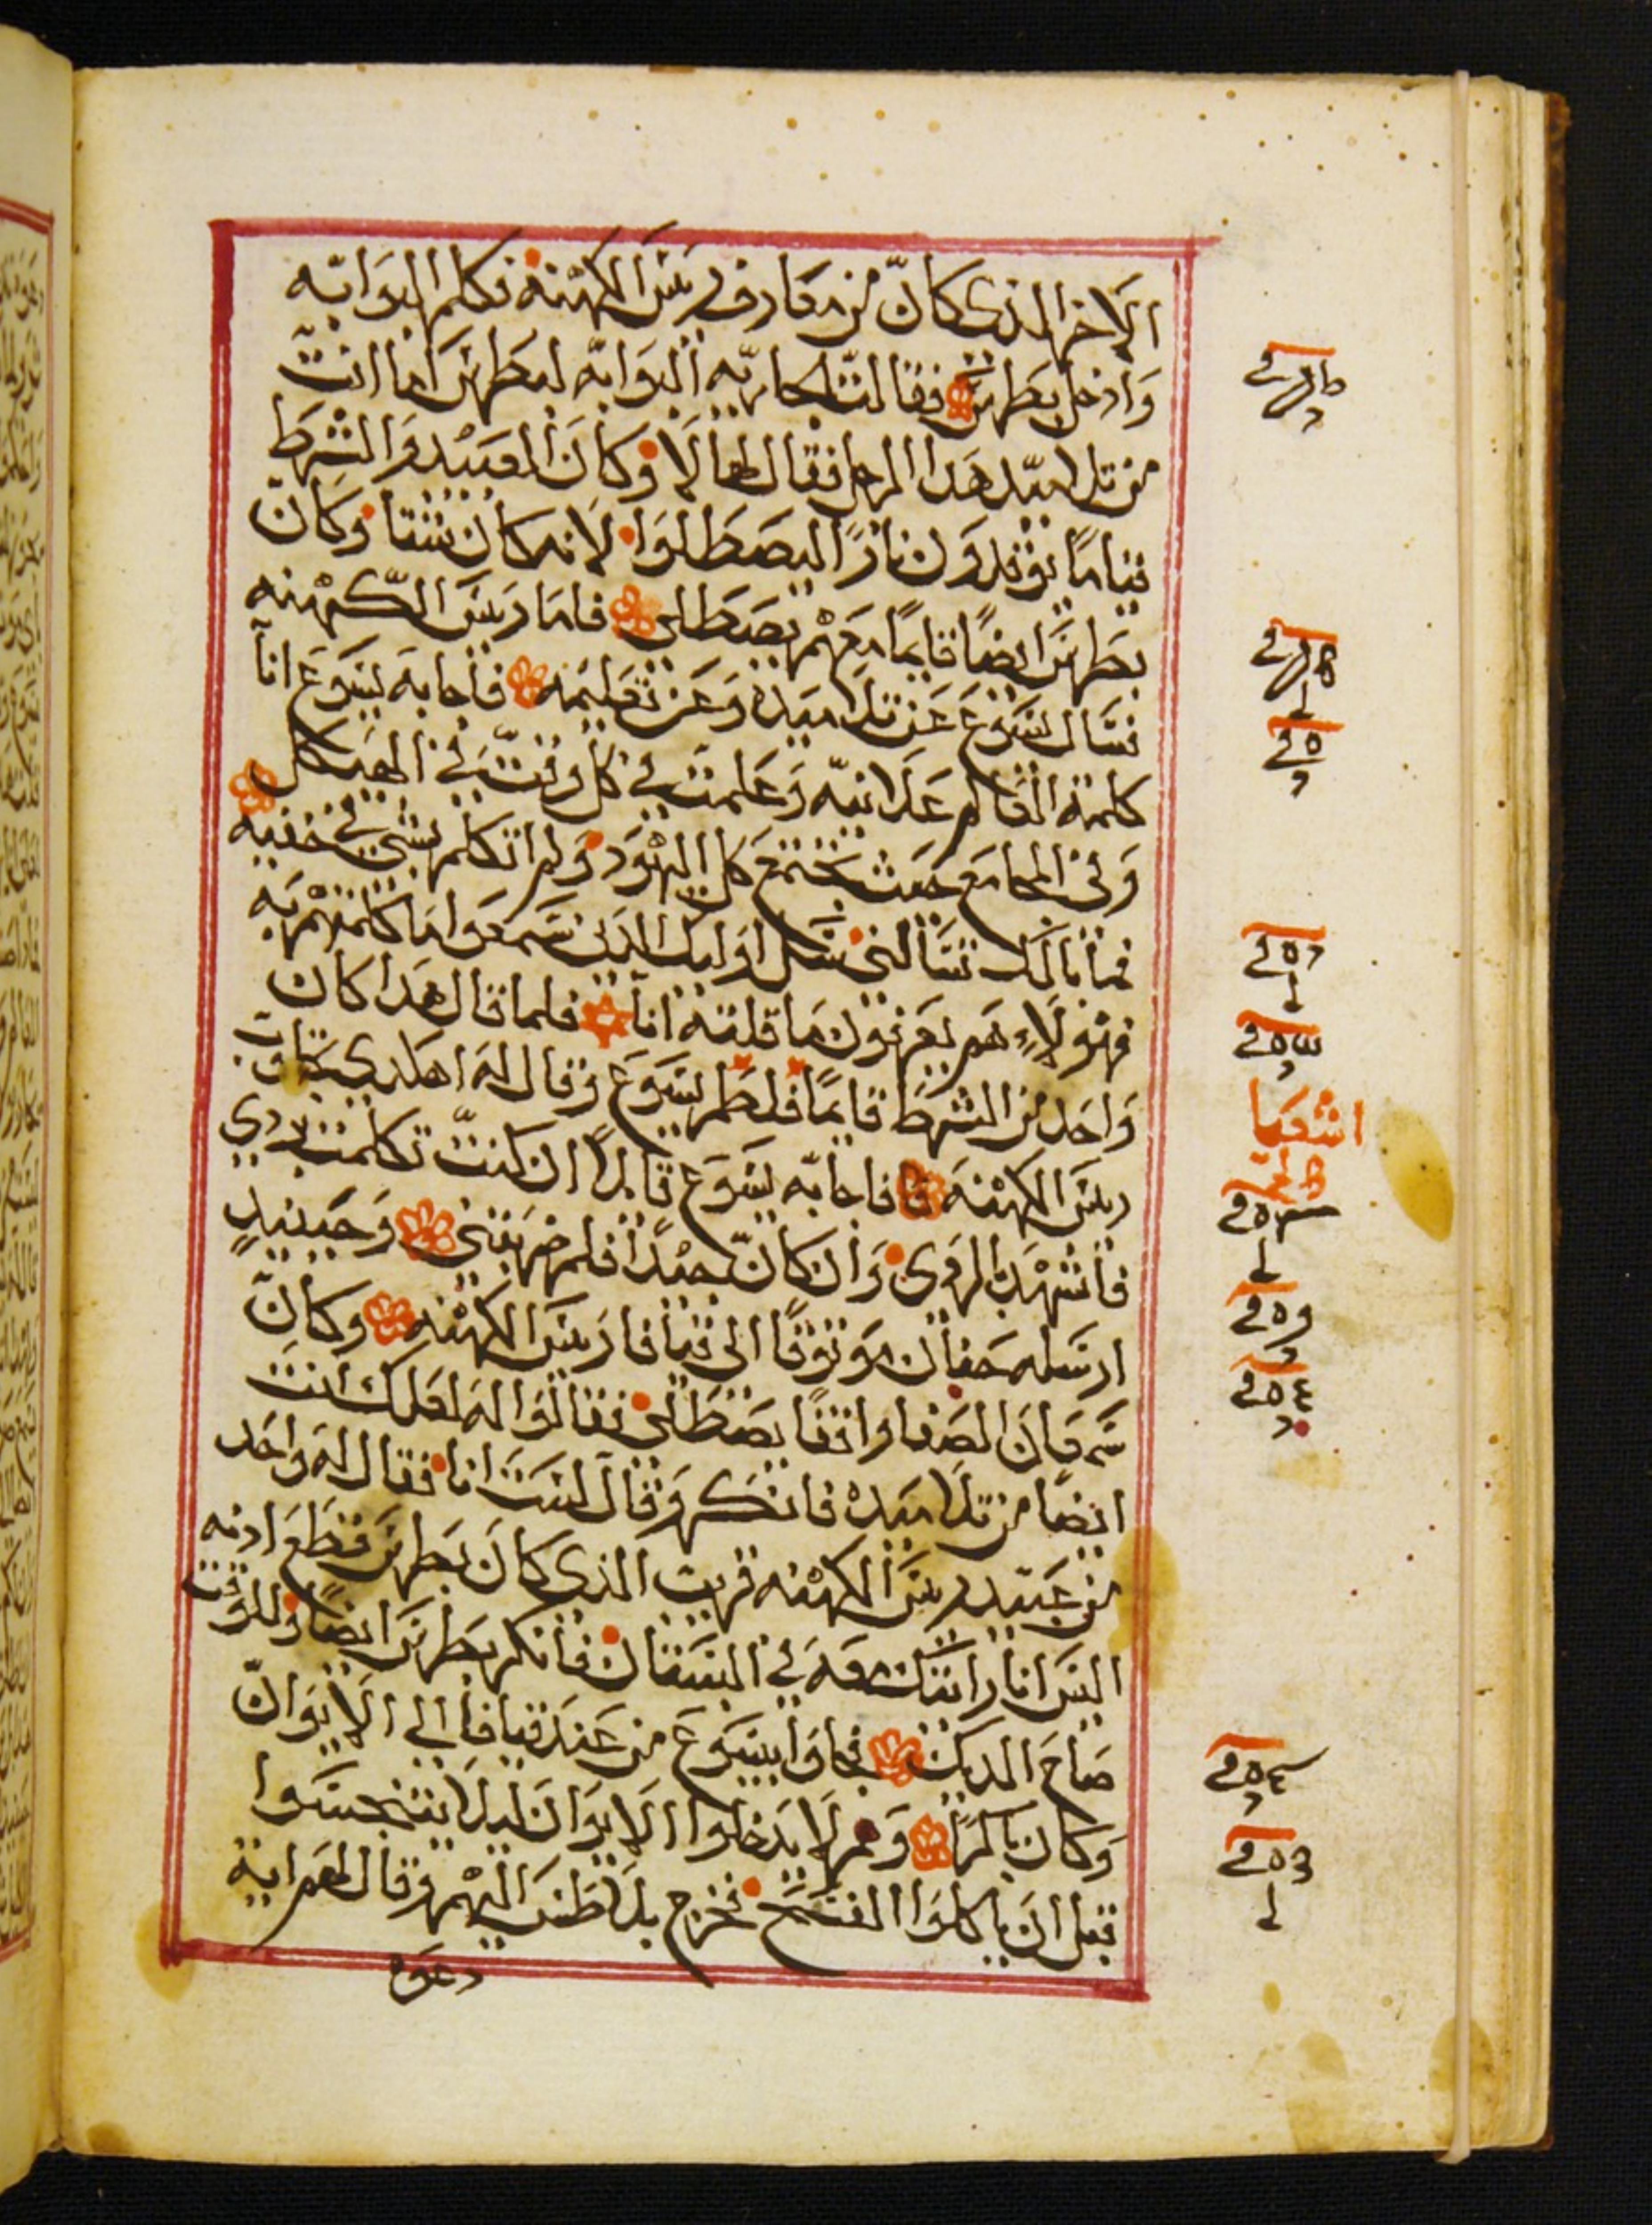 الاخر الذي كان من معارف ريس الكهنه فكلم البوابه
وادخل بطرس فقالت الجاريه البوابه لبطرس اما انت
من تلاميد هدا الرجل فقال لها لا وكان العبيد والشرط
قياما يوقدون نارا ليصطلوا لانه كان شتا وكان
بطرس ايضا قايما معهم يصطلي فاما ريس الكهنه
فسال يسوع عن تلاميده وعن تعليمه فاجابه يسوع انا
كلمت العالم علانيه وعلمت في كل وقت في الهيكل
وفي المجامع حيث يجتمع كل اليهود ولم اتكلم بشي في خفيه
فما بالك تسالني سل اوليك الدين سمعوا ما كلمتهم به
فهولاء هم يعرفون ما قلته انا فلما قال هدا كان
واحد من الشرط قايما فلطم يسوع وقال له اهكدي تجاوب
ريس الكهنه فاجابه يسوع قايلا ان كنت تكلمت بردي
فاشهد بالردي وان كان جيدا فلم ضربتني وحينيد
ارسله حنان موثوقا الى قيافا ريس الكهنه وكان
سمعان الصفا واقفا يصطلي فقالوا له لعلك انت
ايضا من تلاميده فانكر وقال لست انا فقال له واحد
من عبيد ريس الكهنه قريب الذي كان بطرس قطع ادنه
اليس انا رايتك معه في البستان فانكر بطرس ايضا وللوقت
صاح الديك فجاوا بيسوع من عند قيافا الى الايوان
وكان باكرا وهم لا يدخلوا الايوان ليلا يتنجسوا
قبل ان ياكلوا الفسح فخرج بلاطس اليهم وقال لهم اية
دعوه
اشعيا